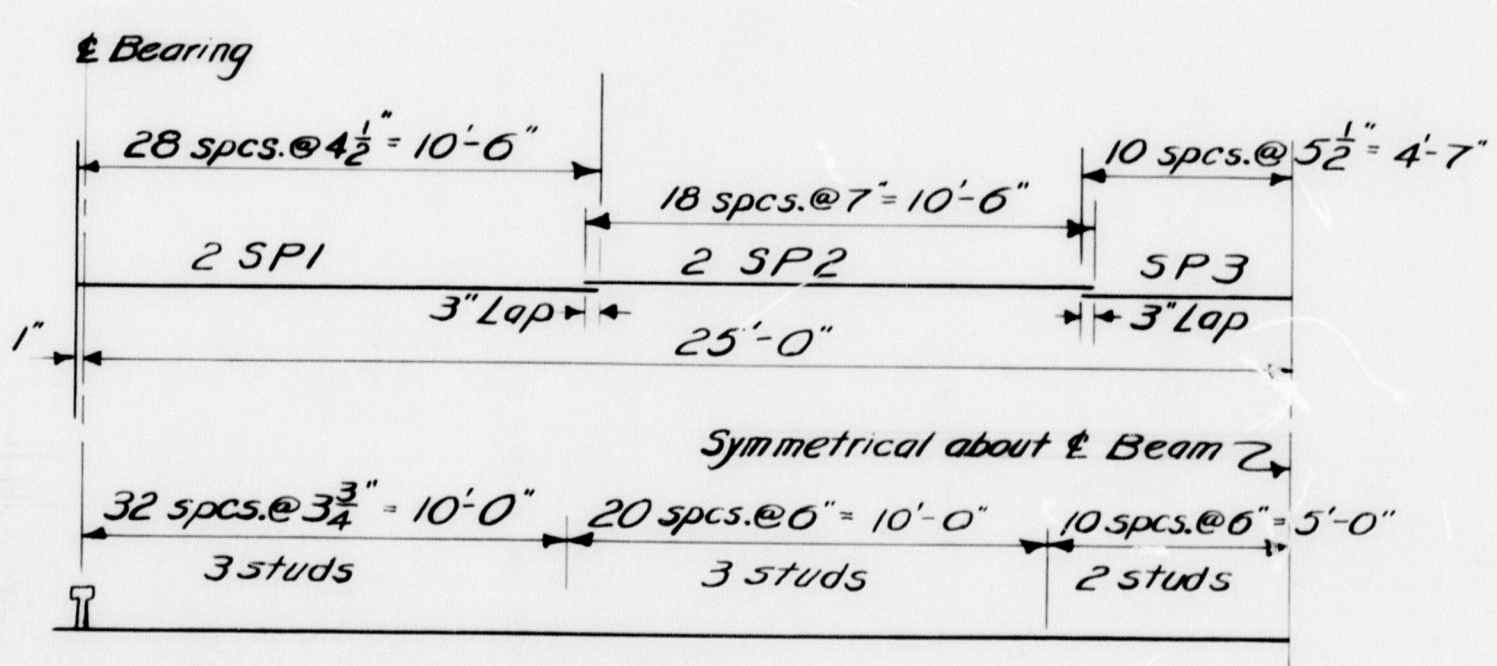 ℄ Bearing
28 spcs.@ 4 1/2" = 10'-6"
10 spcs.@ 5 1/2" = 4'-7"
18 spcs.@ 7" = 10'-6"
2 SP1
2 SP2
SP3
3" Lap
3" Lap
1"
25'-0"
Symmetrical about ℄ Beam
32 spcs.@ 3 3/4" = 10'-0"
20 spcs.@ 6" = 10'-0"
10 spcs.@ 6" = 5'-0"
3 studs
3 studs
2 studs